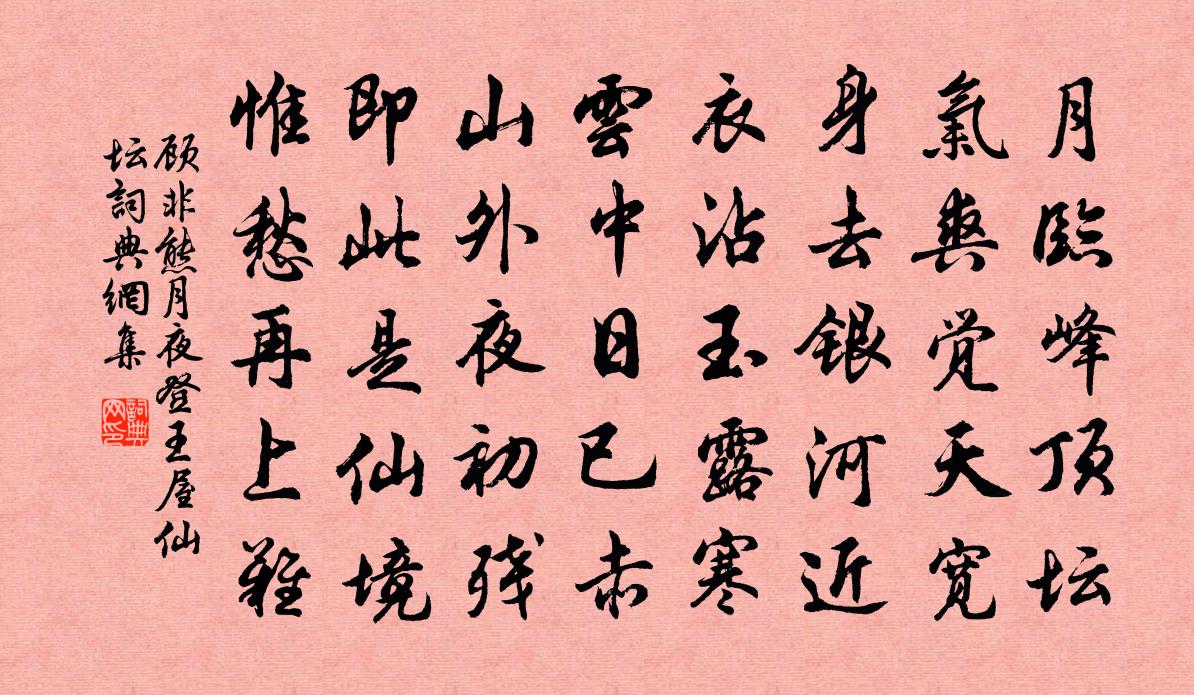 月臨峰顶坛
氣爽觉天宽
身去银河近
衣沾玉露寒
雲中日已赤
山外夜初残
即此是仙境
惟愁再上難
顾非熊月夜登王屋仙
坛詞典網集
詞典网印